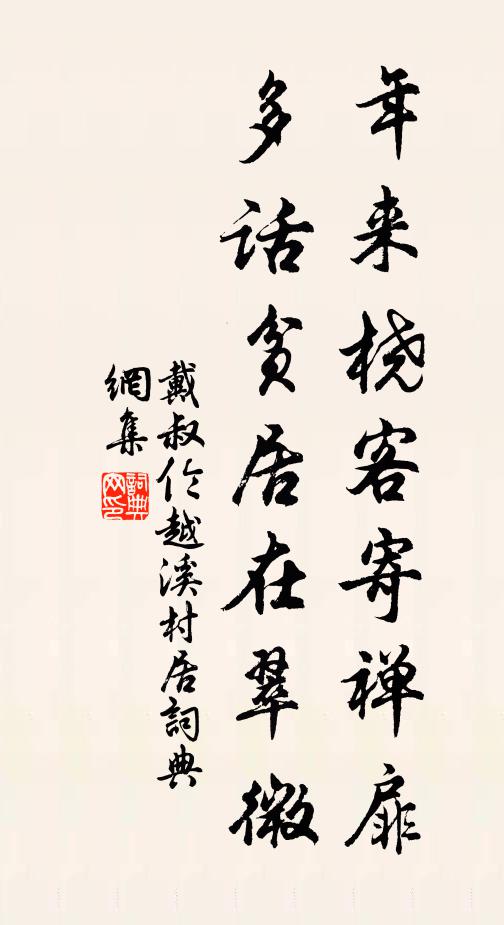 年来桡客寄禅扉
多话贫居在翠微
戴叔伦越溪村居詞典
網集
詞典
网印